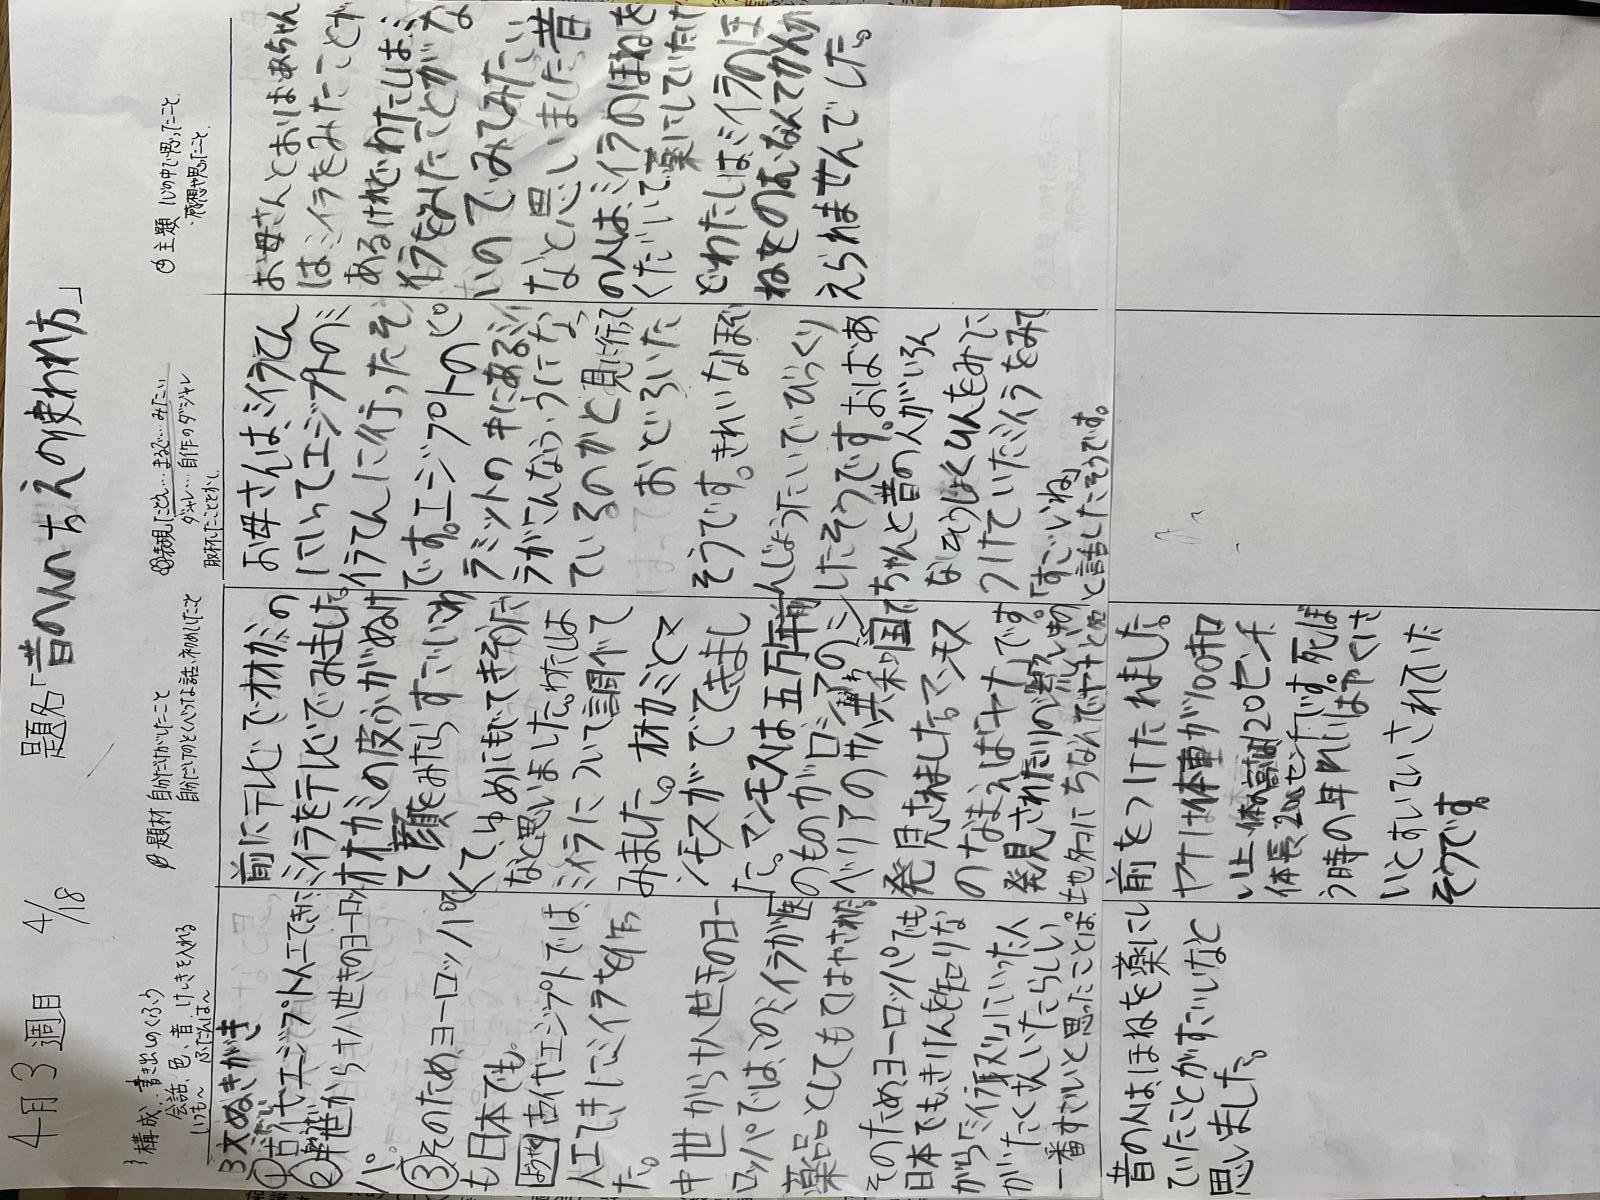 4月3週目 4/18 題名「昔の人のちえの使われ方」
構成、書き出しのくふう
会話、色、音、けしきを入れる
題材 自分だけがしたこと
自分だけのとくべつな話、初めてしたこと
表現 たとえ…まるで…みたい
ダジャレ…自作のダジャレ
取材したこととかし
主題 心の中で思ったこと
・感想や思ったこと
3文ぬきがき
①古代エジプト人工てきに
②中世から十八世きのヨーロッ
パ。
③そのため、ヨーロッパで
も日本でも。
ようやく古代やエジプトでは、
人工てきにミイラを作っ
た。
中世から十八世きのヨー
ロッパでは、このミイラが医
薬品としてもてはやされた。
そのため、ヨーロッパでも
日本でもきけんを知りな
がらミイラ取りにいった人
がたくさんいたらしい。
一番すごいと思ったことは、
昔の人は、ほねを薬にし
ていたことがすごいなと
思いました。
前にテレビでオオカミの
ミイラをテレビでみました。
オオカミの皮ふがぬけ
て顔をみたらすごいこわ
くて、ゆめにもでてきそうだ
なと思いました。わたしは
ミイラについて調べて
みました。オオカミとマ
ンモスがでてきまし
た。マンモスは五万年前
のものがロシアのシ
ベリアのサハ共和国で
発見されました。マンモス
のなまえは「ヤナ」です。
発見されたのが
ちなんでヤナと名
前をつけたれました。
ヤナは体重が100キロ
い上、体高は120センチ
体長200センチです。死ぼ
う時の年れいは1才くら
いとすいていされていた
そうです。
お母さんは、ミイラてん
にいってエジプトのミ
イラてんに行ったそう
です。エジプトのピ
ラミットの中にあるミイ
ラがこんなふうになっ
ているのかと見に行って
おどろいた
そうです。きれいなほぞ
んじょうたいでびっくり
したそうです。おばあ
ちゃんと昔の人がいろん
なそうしょくひんをみに
つけていたミイラをみて
「すごいね」
と話したそうです。
お母さんとおばあちゃん
はミイラをみたことが
あるけれどわたしはミ
イラをみたことがな
いのでみてみたい
なと思いました。昔
の人は、ミイラのほねを
くだいて薬にしていたけ
どわたしはミイラのほ
ねをのむなんてかんが
えられませんでした。